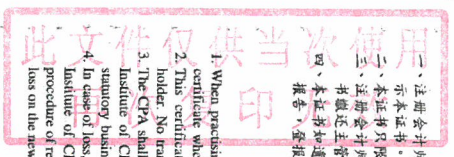 一、注册会计师
示本证书。
二、本证书只限
三、注册会计师
书缴还主管
四、本证书如遗
报告，登报
1. When practising
certificate when
2. This certificate
holder. No tran
3. The CPA shall
Institute of C
statutory busin
4. In case of loss,
Institute of C
procedure of re
loss on the new
此文件仅供当次使用
再次复印无效